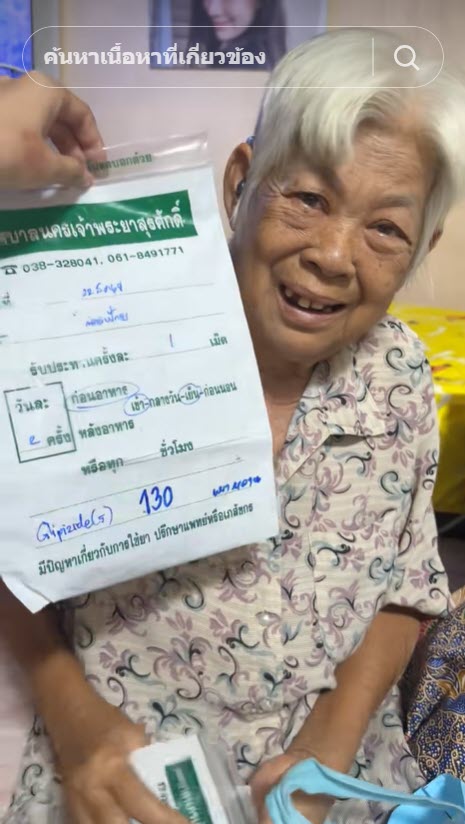 ค้นหาเนื้อหาที่เกี่ยวข้อง
บาลนครเจ้าพระยาสุรศักดิ์
☎ 038-328041, 061-8491771
ที่
รับประทานครั้งละ 1 เม็ด
วันละ ก่อนอาหาร เช้า-กลางวัน-เย็น-ก่อนนอน
๒ ครั้ง หลังอาหาร
หรือทุก ชั่วโมง
Glipizide(5) 130 เบาหวาน
มีปัญหาเกี่ยวกับการใช้ยา ปรึกษาแพทย์หรือเภสัชกร